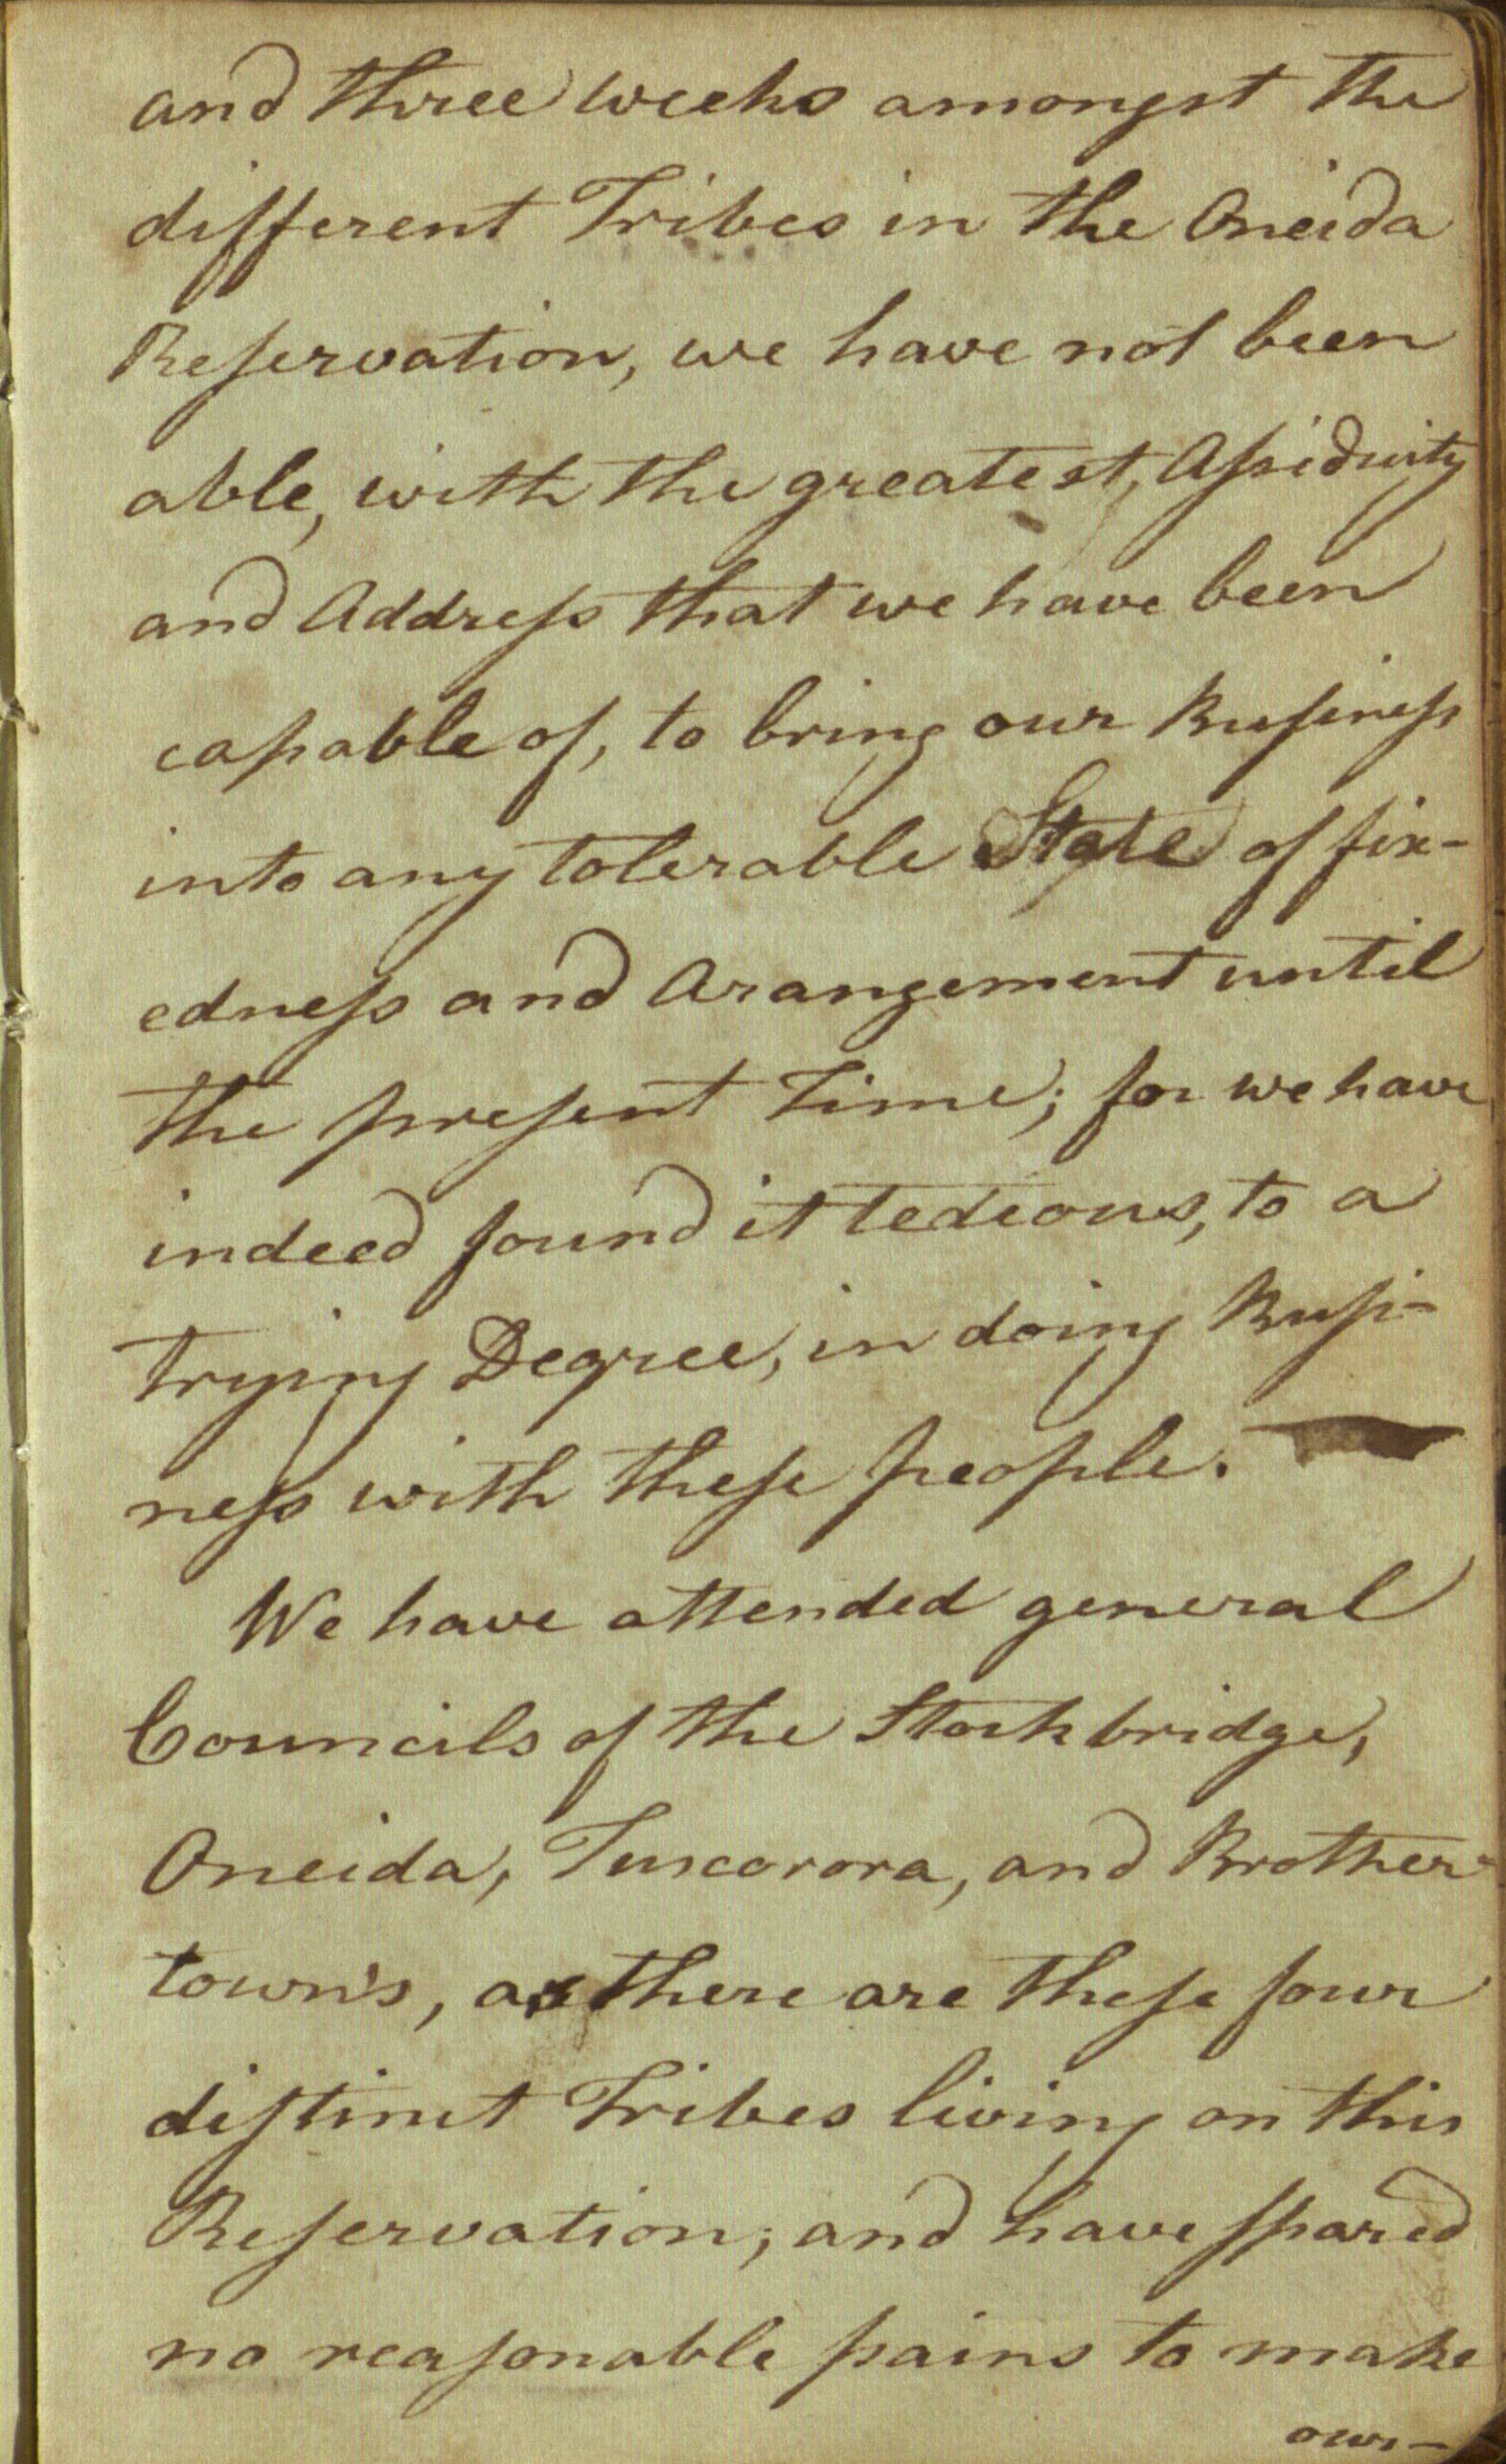 and three weeks amongst the
different Tribes in the Oneida
Reſervation, we have not been
able, with the greatest, Aſsiduity
and Addreſs that we have been
capable of, to bring our Buſineſs
into any tolerable State of fix-
edneſs and Arangement until
the preſent Time; for we have
indeed found it tedious, to a
trying Degree, in doing Buſi-
neſs with theſe people.
We have attended general
Councils of the Stockbridge,
Oneida, Tuscorora, and Brother-
town's, as there are theſe four
diſtinct Tribes living on this
Reſervation; and have ſpared
no reaſonable pains to make
our-